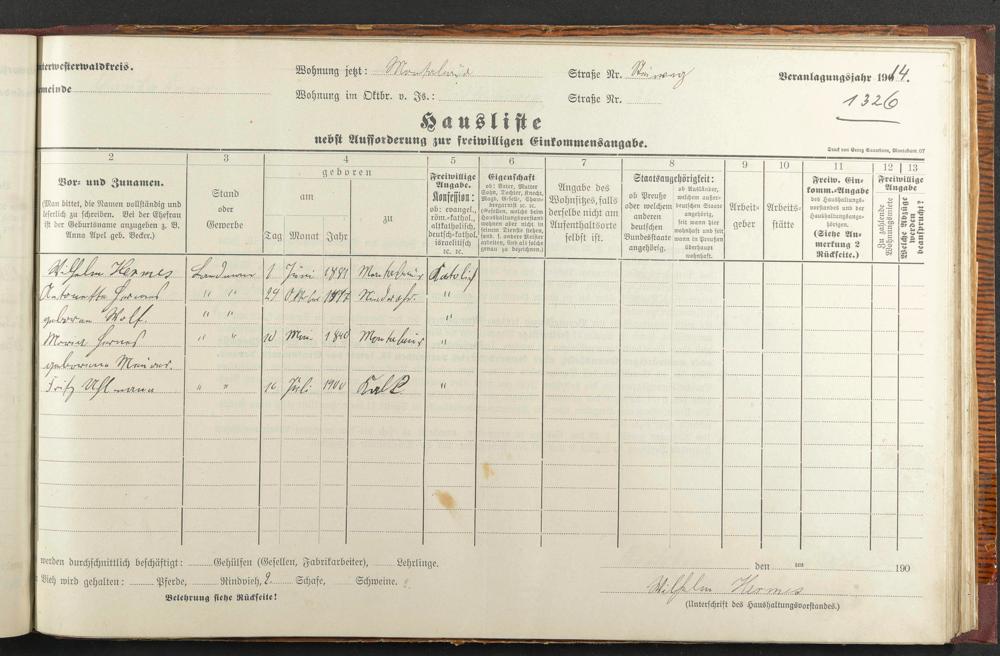 nterwesterwaldkreis. Wohnung jetzt: Straße Nr. Veranlagungsjahr 1914.
emeinde Wohnung im Oktbr. v. Js.: Straße Nr. 1326
Hausliste
nebst Aufforderung zur freiwilligen Einkommensangabe.
Druck von Georg Sauerborn, Montabaur. 07
2 3 4 5 6 7 8 9 10 11 12 13
Vor- und Zunamen.
(Man bittet, die Namen vollständig und leserlich zu schreiben. Bei der Ehefrau ist der Geburtsname anzugeben z. B. Anna Apel geb. Becker.)
Stand oder Gewerbe
geboren
am zu
Tag Monat Jahr
Freiwillige Angabe. Konfession: ob: evangel., röm.-kathol., altkatholisch, deutsch-kathol., israelitisch ꝛc. ꝛc.
Eigenschaft ob: Vater, Mutter, Sohn, Tochter, Knecht, Magd, Gesell,
Angabe des Wohnsitzes, falls derselbe nicht am Aufenthaltsorte selbst ist.
Staatsangehörigkeit:
ob Preuße oder welchem anderen deutschen Bundesstaate angehörig.
ob Ausländer, welchem außerdeutschen Staate angehörig, seit wann hier wohnhaft und seit wann in Preußen überhaupt wohnhaft.
Arbeitgeber
Arbeitsstätte
Freiw. Einkomm.-Angabe des Haushaltungsvorstandes und der Haushaltungsangehörigen. (Siehe Anmerkung 2 Rückseite.)
Freiwillige Angabe
Zu zahlende Wohnungsmiete
Welche Abzüge werden beansprucht?
Wilhelm Hermes Landmann 1 Juni 1881 Montabaur Katolisch
Antonette Hermes " " 24 Oktober "
geboren Wolf. " " "
Maria Hermes " " 10 Mai 1840 Montabaur "
geborene
Fritz Uhlmann " " 16 Juli 1900 Kalk "
werden durchschnittlich beschäftigt: Gehülfen (Gesellen, Fabrikarbeiter), Lehrlinge.
Vieh wird gehalten: Pferde, Rindvieh, 2 Schafe, Schweine.
Belehrung siehe Rückseite!
den ten 190
Wilhelm Hermes
(Unterschrift des Haushaltungsvorstandes.)